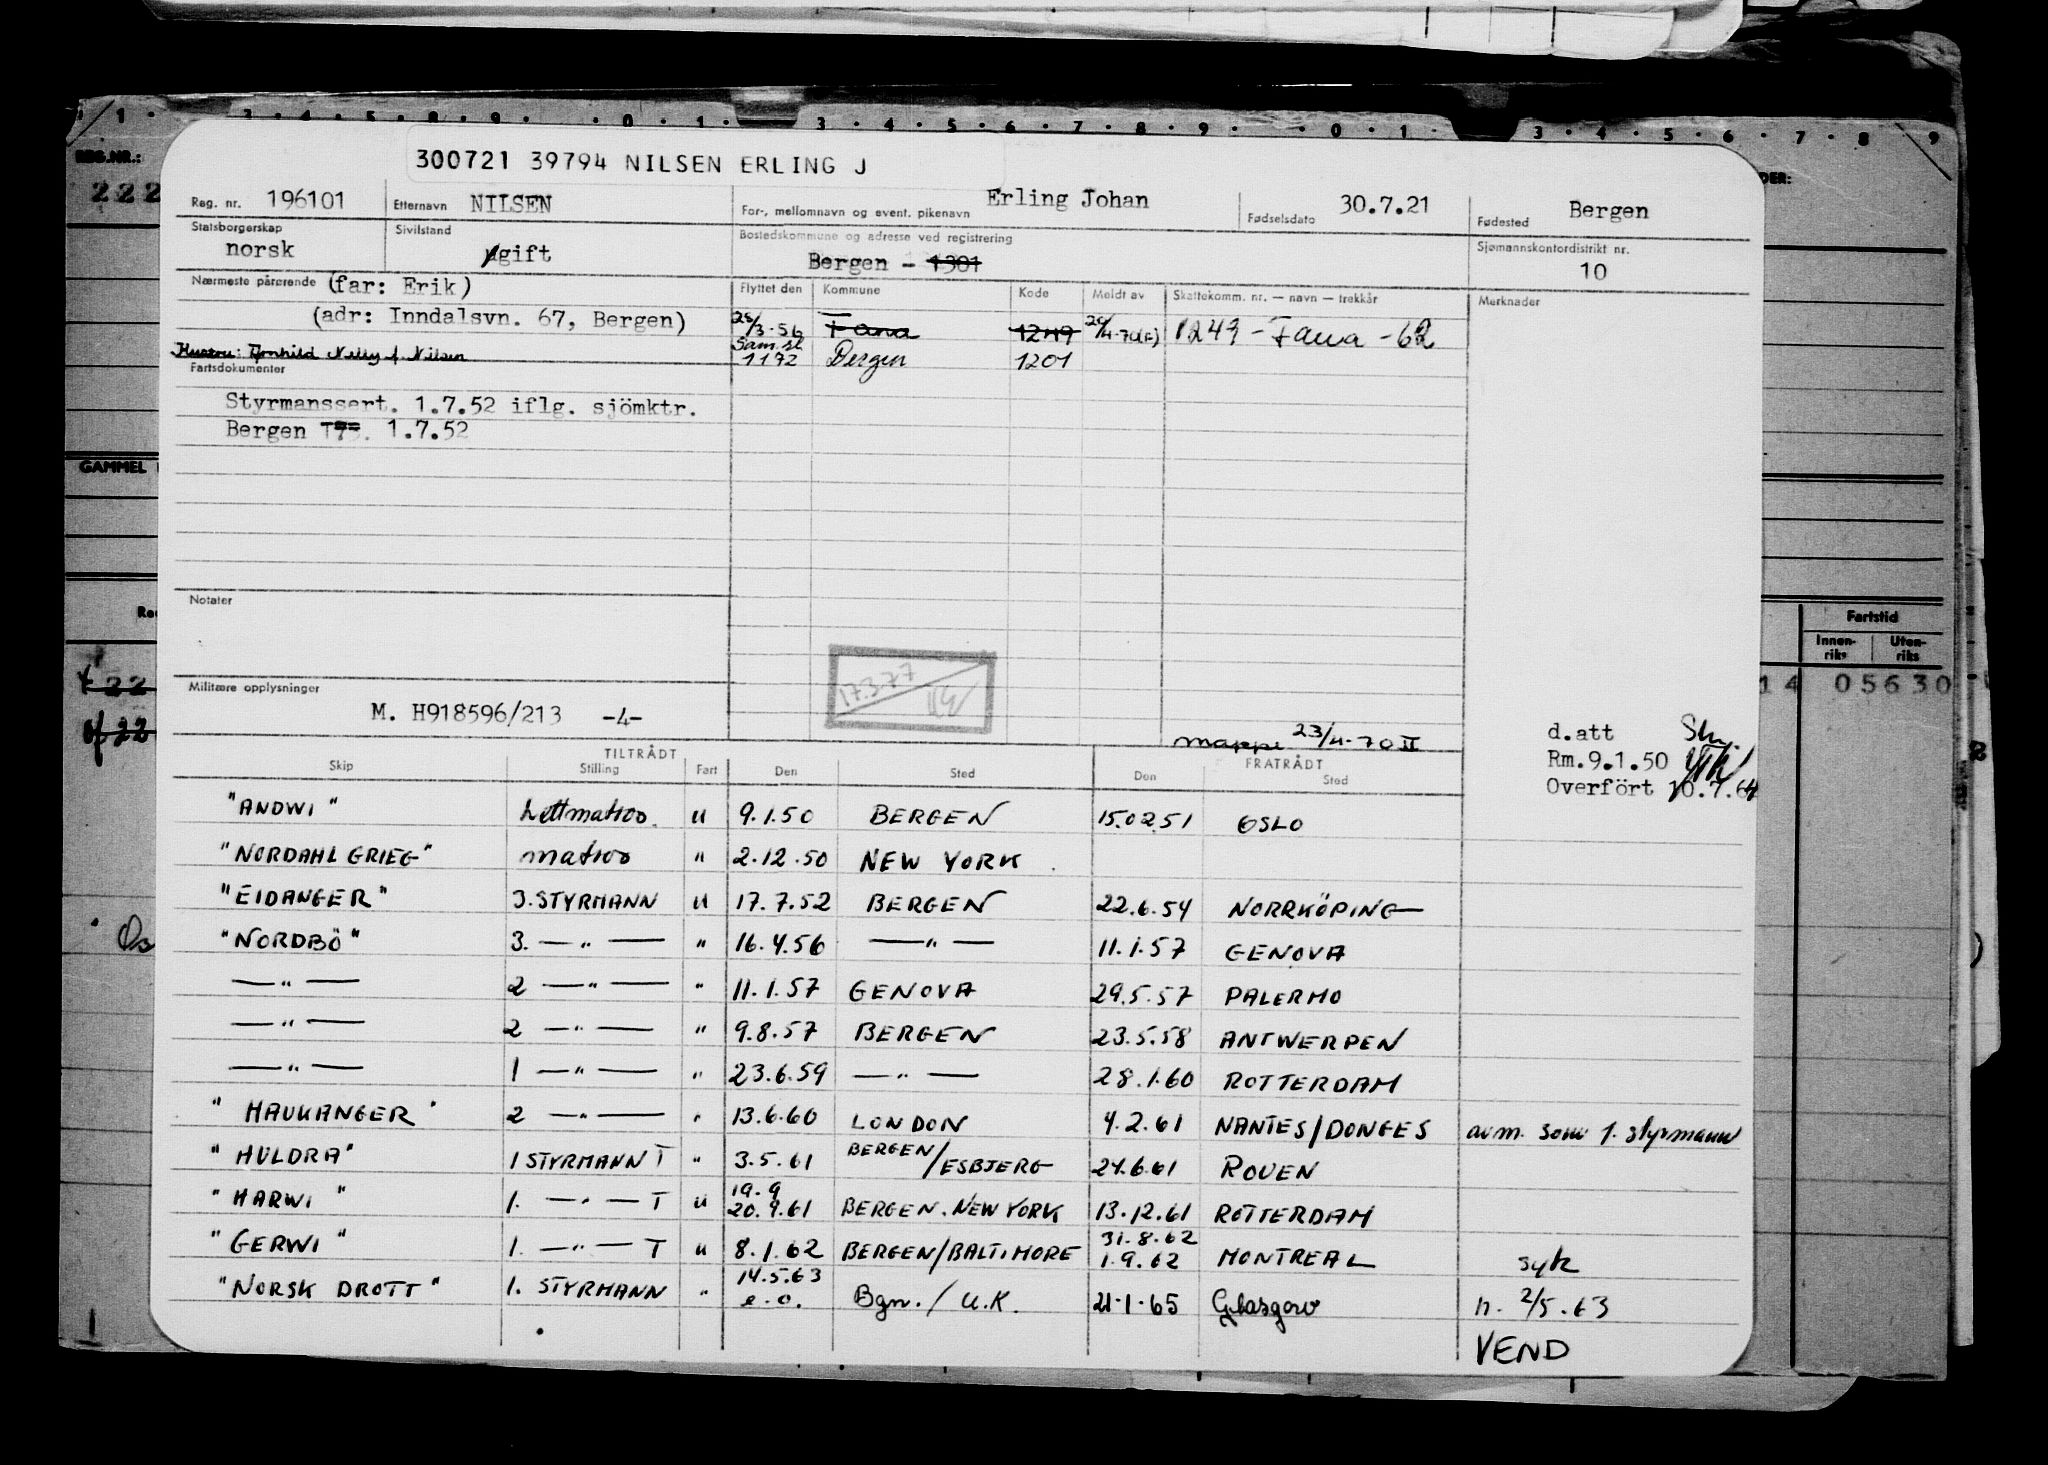 300721 39794 NILSEN ERLING J
Reg. nr. 196101 Etternavn NILSEN For-, mellomnavn og event. pikenavn Erling Johan Fødselsdato 30.7.21 Fødested Bergen
Statsborgerskap norsk Sivilstand gift Bostedskommune og adresse ved registrering Bergen - 1301 Sjømannskontordistrikt nr. 10
Nærmeste pårørende (far: Erik) Flyttet den Kommune Kode Meldt av Skattekomm. nr. — navn — trekkår Merknader
(adr: Inndalsvn. 67, Bergen) 25/3-56 Fana 1249 1249 - Fana - 62
Nelly f. Nilsen Sam.sl. 1172 Bergen 1201
Fartsdokumenter
Styrmanssert. 1.7.52 iflg. sjömktr.
Bergen 1.7.52
Notater
17.3.77
Militære opplysninger
M. H918596/213 -4-
mappe 23/4-70 II
d.att
Rm.9.1.50
Overfört 20.7.64
TILTRÅDT FRATRÅDT
Skip Stilling Fart Den Sted Den Sted
"ANDWI" Lettmatros. u 9.1.50 BERGEN 15.02.51 OSLO
"NORDAHL GRIEG" matros " 2.12.50 NEW YORK
"EIDANGER" 3. STYRMANN u 17.7.52 BERGEN 22.6.54 NORRKÖPING
"NORDBÖ" 3. —"— " 16.4.56 —"— 11.1.57 GENOVA
—"— 2 —"— " 11.1.57 GENOVA 29.5.57 PALERMO
—"— 2 —"— " 9.8.57 BERGEN 23.5.58 ANTWERPEN
—"— 1 —"— " 23.6.59 —"— 28.1.60 ROTTERDAM
"HAUKANGER" 2 —"— " 13.6.60 LONDON 4.2.61 NANTES/DONGES avm. som 1. styrmann
"HULDRA" 1 STYRMANN T " 3.5.61 BERGEN/ESBJERG 24.6.61 ROUEN
"HARWI" 1. —"— T u 19.9 20.9.61 BERGEN. NEW YORK 13.12.61 ROTTERDAM
"GERWI" 1. —"— T u 8.1.62 BERGEN/BALTIMORE 31.8.62 1.9.62 MONTREAL syk
"NORSK DROTT" 1. STYRMANN " 14.5.63 e.o. Bgn./U.K. 21.1.65 Glasgow h. 2/5.63
VEND
REG.NR.:
222
GAMMEL
Fartstid
Innen-riks Uten-riks
14 05630